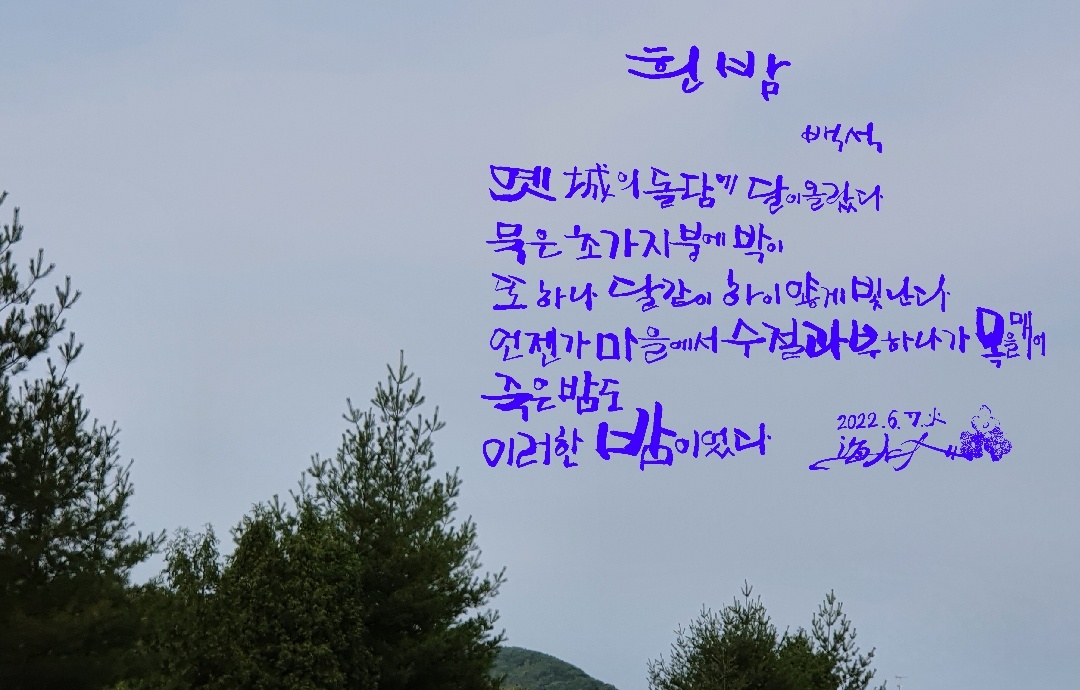 흰 밤
백석
옛 城의 돌담에 달이 올랐다
묵은 초가지붕에 박이
또 하나 달같이 하이얗게 빛난다
언젠가 마을에서 수절과부 하나가 목을 매어
죽은 밤도
이러한 밤이었다
2022.6.7.火